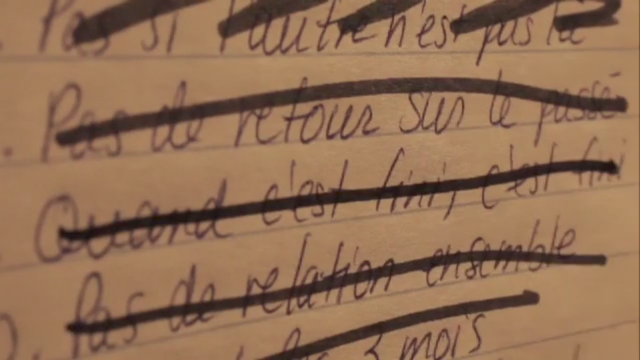 . Pas si l'autre n'est pas là
. Pas de retour sur le passé
Quand c'est fini, c'est fini
Pas de relation ensemble
3 mois